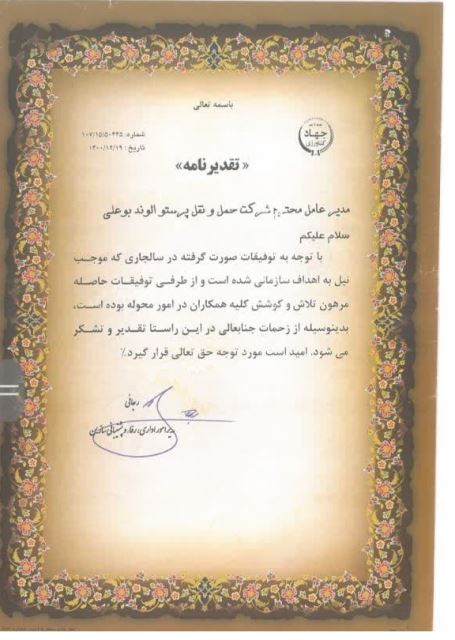 باسمه تعالی
جهاد
کشاورزی
شماره: ۱۰۷/۱۵/۵۰۴۴۵
تاریخ: ۱۴۰۰/۱۲/۱۹
« تقدیرنامه»
مدیر عامل محترم شرکت حمل و نقل پرستو الوند بوعلی
سلام علیکم
با توجه به توفیقات صورت گرفته در سالجاری که موجب
نیل به اهداف سازمانی شده است و از طرفی توفیقات حاصله
مرهون تلاش و کوشش کلیه همکاران در امور محوله بوده است،
بدینوسیله از زحمات جنابعالی در این راستا تقدیر و تشکر
می شود. امید است مورد توجه حق تعالی قرار گیرد./
رجائی
مدیر امور اداری، رفاه و پشتیبانی